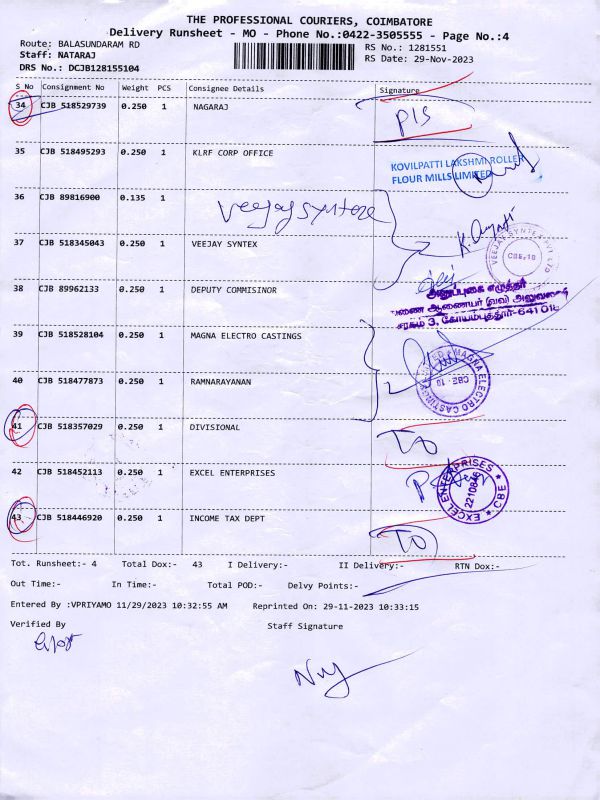 THE PROFESSIONAL COURIERS, COIMBATORE
Delivery Runsheet - MO - Phone No.:0422-3505555 - Page No.:4
Route: BALASUNDARAM RD
RS No.: 1281551
Staff: NATARAJ
RS Date: 29-Nov-2023
DRS No.: DCJB128155104
S No Consignment No Weight PCS Consignee Details Signature
34 CJB 518529739 0.250 1 NAGARAJ
35 CJB 518495293 0.250 1 KLRF CORP OFFICE
KOVILPATTI LAKSHMI ROLLER
FLOUR MILLS LIMITED
36 CJB 89816900 0.135 1 Veejay Syntex
37 CJB 518345043 0.250 1 VEEJAY SYNTEX
VEEJAY SYNTEX PVT LTD
CBE.18
38 CJB 89962133 0.250 1 DEPUTY COMMISINOR
அனுப்புகை எழுத்தர்
சரகம் 3, கோயம்புத்தூர்-641018
39 CJB 518528104 0.250 1 MAGNA ELECTRO CASTINGS
40 CJB 518477873 0.250 1 RAMNARAYANAN
MAGNA ELECTRO CASTING
CBE - 18
41 CJB 518357029 0.250 1 DIVISIONAL TO
42 CJB 518452113 0.250 1 EXCEL ENTERPRISES
EXCEL ENTERPRISES * CBE *
2210846
43 CJB 518446920 0.250 1 INCOME TAX DEPT TO
Tot. Runsheet:- 4 Total Dox:- 43 I Delivery:- II Delivery:- RTN Dox:-
Out Time:- In Time:- Total POD:- Delvy Points:-
Entered By :VPRIYAMO 11/29/2023 10:32:55 AM Reprinted On: 29-11-2023 10:33:15
Verified By Staff Signature